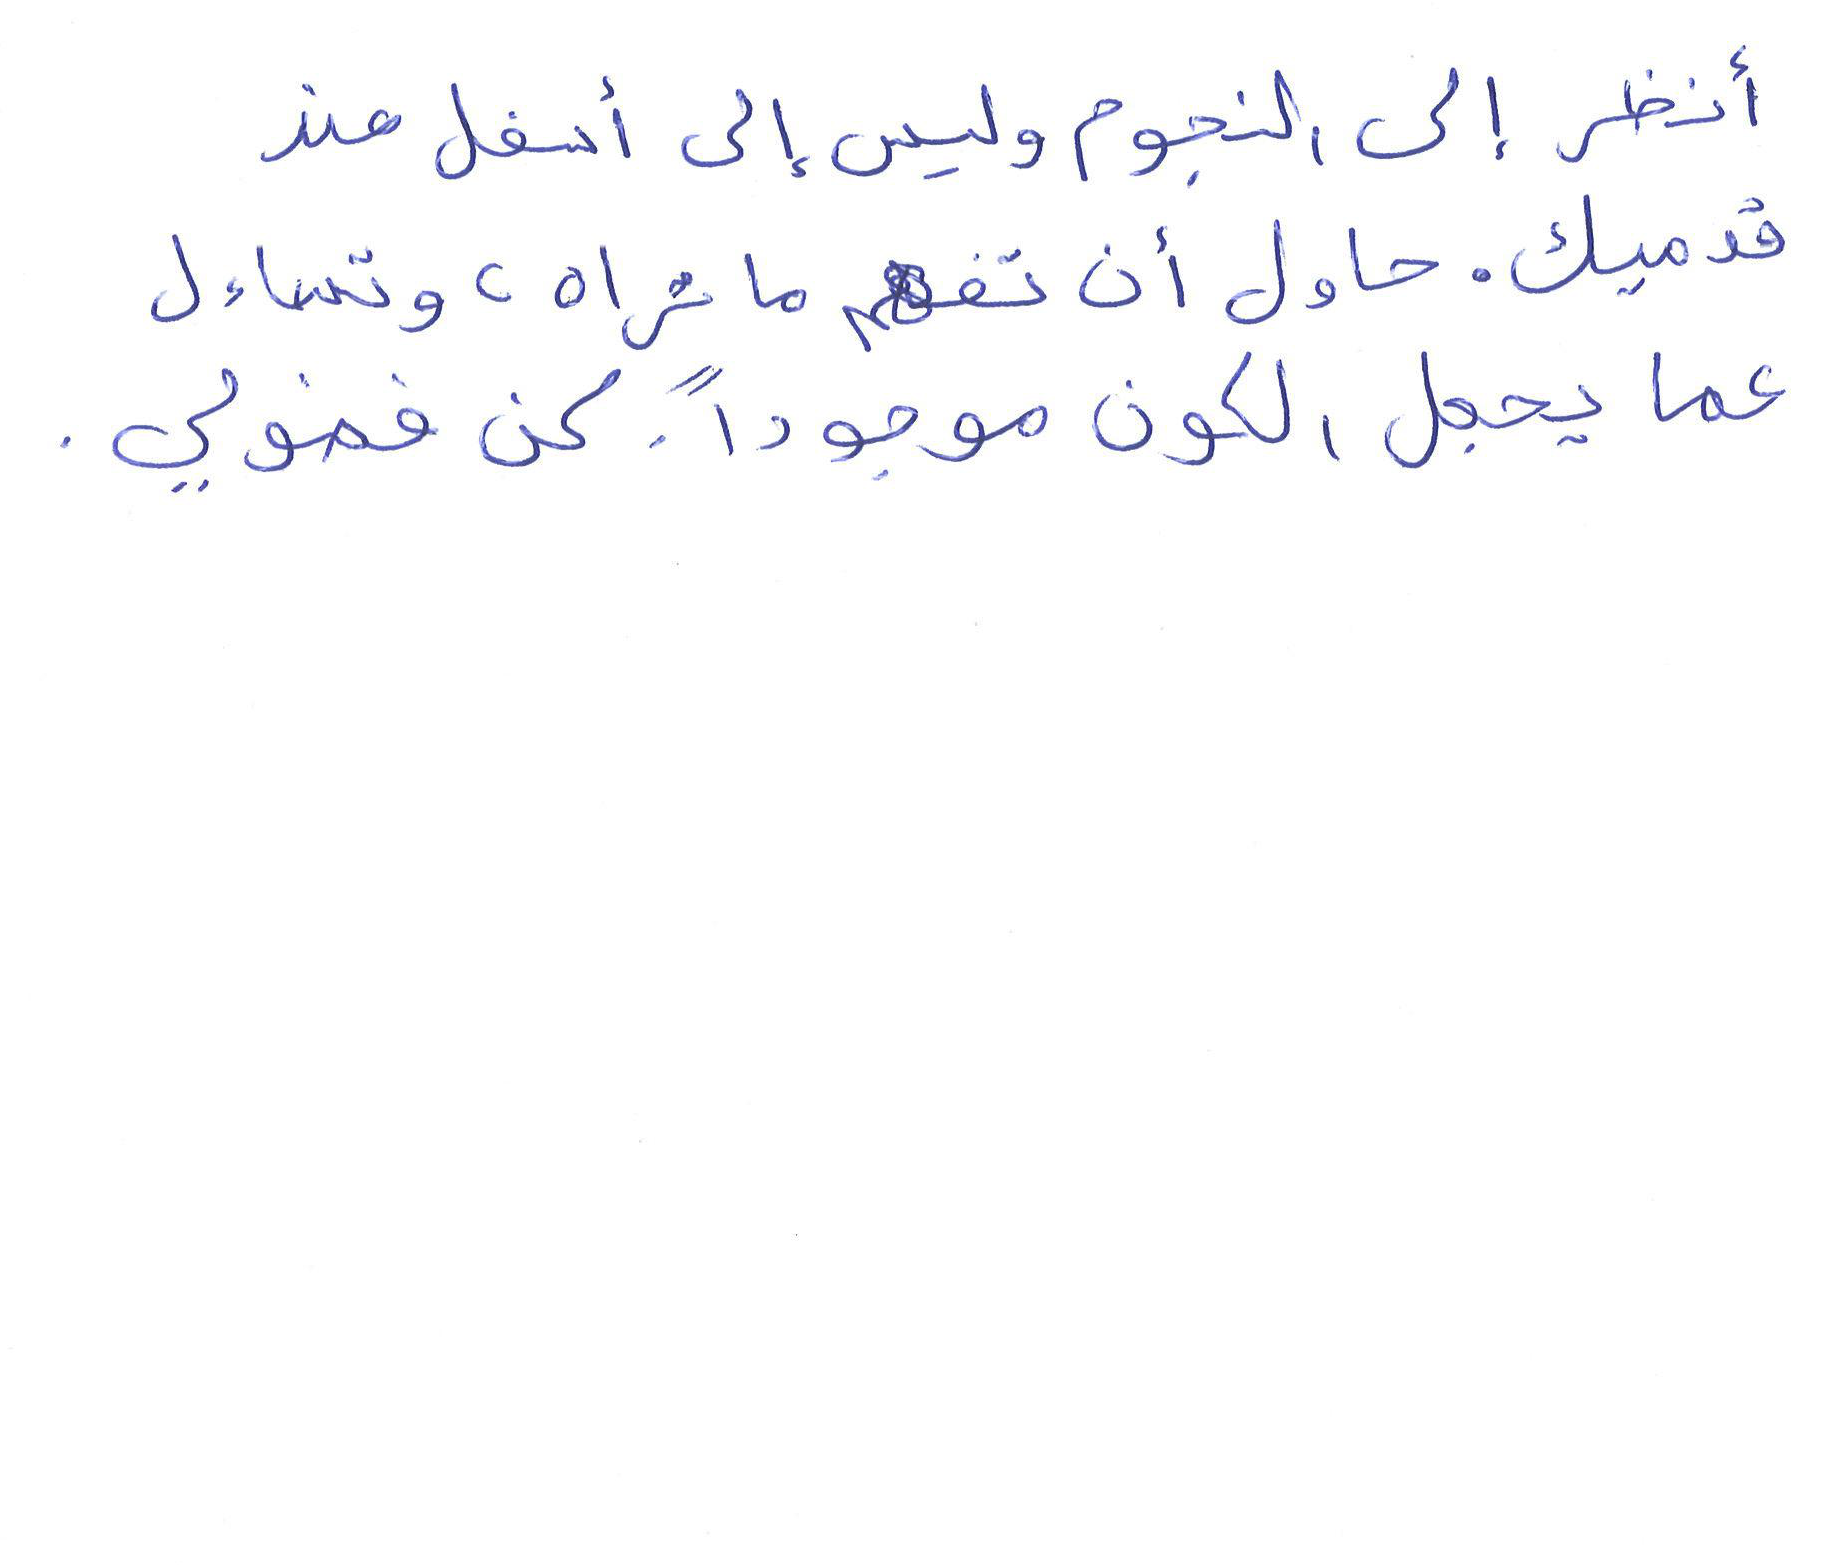 أنظر إلى النجوم وليس إلى أسفل عند
قدميك. حاول أن تفهم ما تراه، وتساءل
عما يجعل الكون موجوداً. كن فضولي.